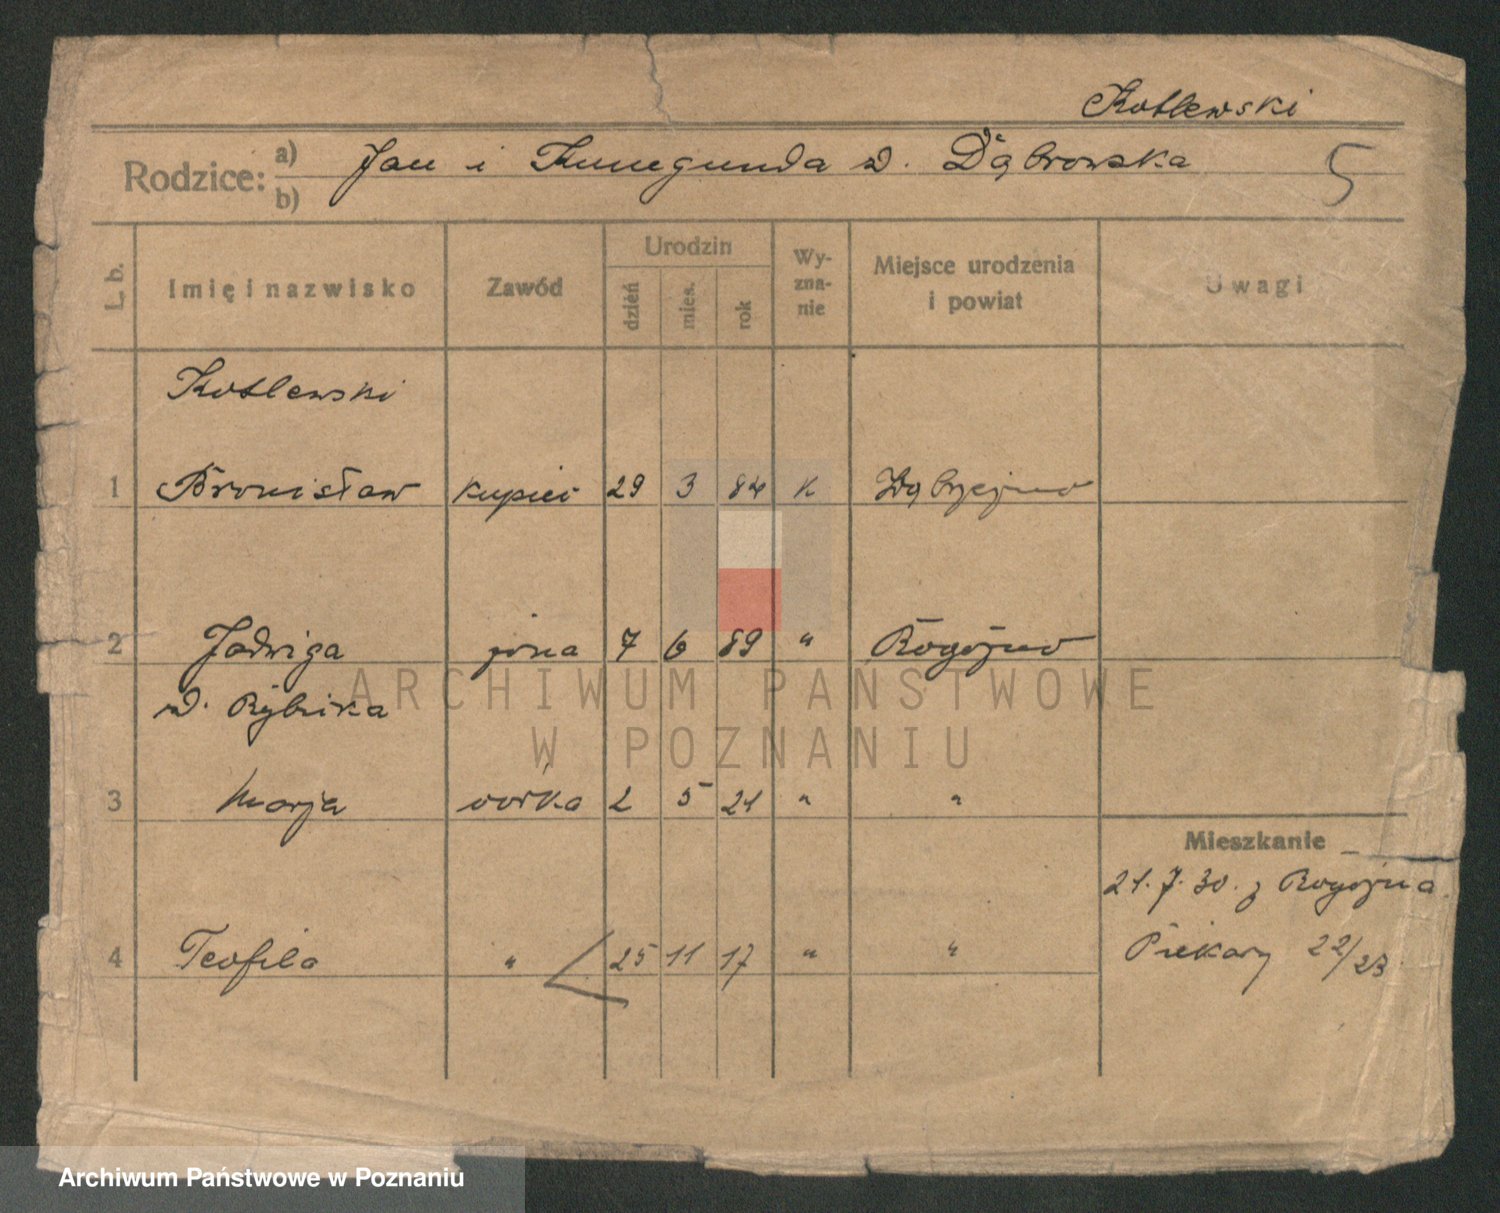 Kotlewski
Rodzice: a) Jan i Kunegunda d. Dąbrowska 5
b)
L. b. Imię i nazwisko Zawód Urodzin Wy-zna-nie Miejsce urodzenia i powiat Uwagi
dzień mies. rok
Kotlewski
1 Bronisław kupiec 29 3 84 K
2 Jadwiga żona 7 6 89 " Rogoźno
d. Rybicka
3 Marja córka 2 5 21 " "
Mieszkanie
21. 7. 30. z Rogoźna
4 Teofila " 25 11 17 " "
Piekary 22/23
ARCHIWUM PAŃSTWOWE
W POZNANIU
Archiwum Państwowe w Poznaniu